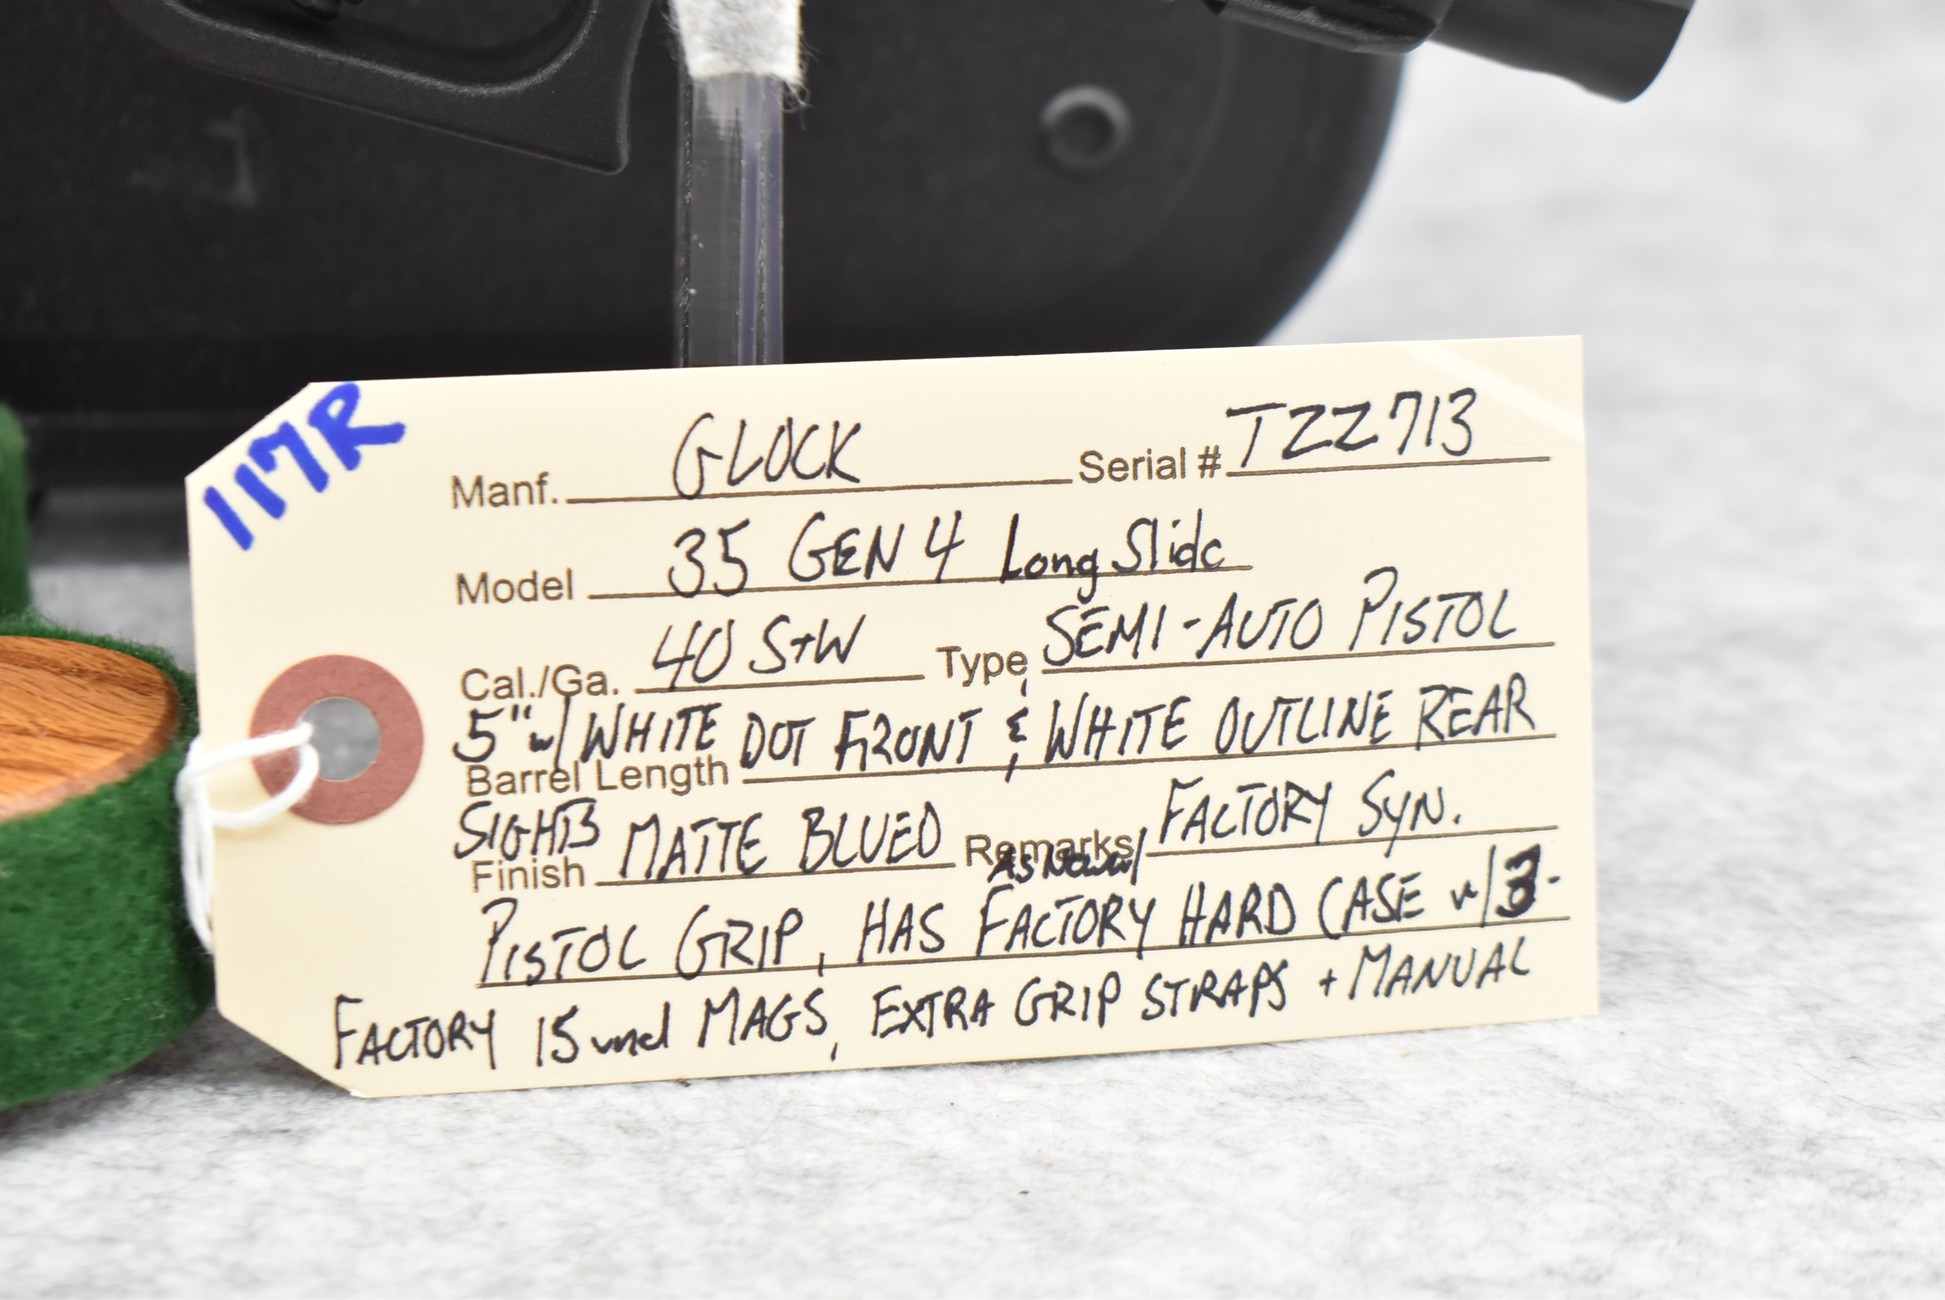 117R
Manf. GLOCK Serial # TZZ713
Model 35 GEN 4 Long Slide
Cal./Ga. 40 S+W Type SEMI-AUTO PISTOL
5" w/ WHITE DOT FRONT & WHITE OUTLINE REAR
Barrel Length
SIGHTS
Finish MATTE BLUED Remarks FACTORY SYN.
AS New w/
PISTOL GRIP, HAS FACTORY HARD CASE w/ 3-
FACTORY 15 rnd MAGS, EXTRA GRIP STRAPS + MANUAL